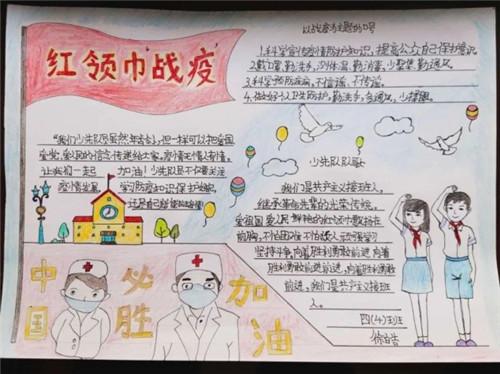 红领巾战疫
以战疫为主题的口号
1.科学宣传疫情防护知识,提高公众自己保护意识。
2.戴口罩,勤洗手,测体温,勤消毒,少聚集,勤通风。
3.科学预防疾病,不信谣、不传谣。
4.做好个人卫生防护,勤洗手,多通风,少探朋。
"我们少先队员虽然年龄小,但一样可以把爱国
爱党、爱人民的信念传递给大家。疫情无情人有情。
让我们一起 加油!少先队员不仅要关注
疫情发展
学习防疫知识,保护好自己
少先队队歌
我们是共产主义接班人,
继承革命先辈的光荣传统,
爱祖国爱人民 鲜艳的红领巾飘扬在
前胸,不怕困难 不怕敌人 顽强学习
坚持斗争,向着胜利勇敢前进 向着
胜利勇敢前进前进,向着胜利勇敢
前进,我们是共产主义接班
人。
四(4)班
中国
必胜
加油